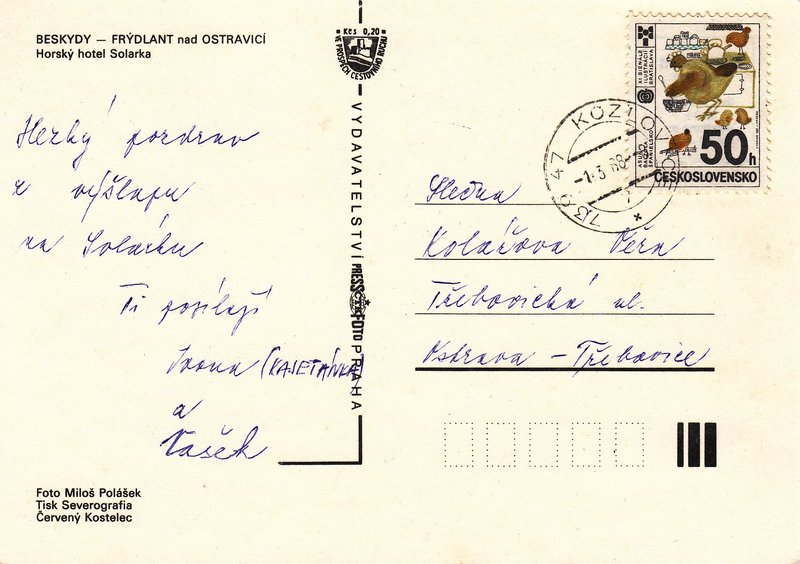 BESKYDY — FRÝDLANT nad OSTRAVICÍ
Horský hotel Solarka
Hezký pozdrav
z výšlapu
na Solárku
Ti posílají
Ivona (KAJETÁNKA)
a
Vašek
Foto Miloš Polášek
Tisk Severografia
Červený Kostelec
Kčs 0,20
VE PROSPĚCH CESTOVNÍHO RUCHU
VYDAVATELSTVÍ PRESSFOTO PRAHA
739 47 KOZLOVICE
-1.3.88
XI BIENÁLE
ILUSTRÁCIÍ
BRATISLAVA
ASUN
BALZOLA
ŠPANIELSKO
50h
ČESKOSLOVENSKO
Slečna
Kolářova Věra
Třebovická ul.
Ostrava – Třebovice